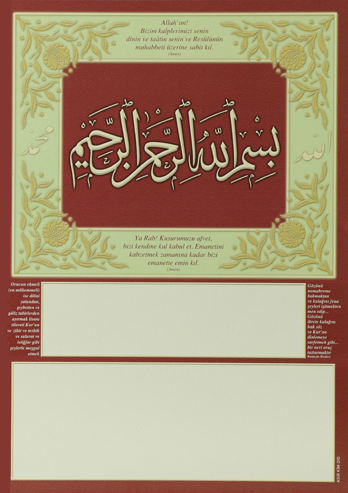 Allah'ım!
Bizim kalplerimizi senin
dinin ve taâtin senin ve Resûlünün
muhabbeti üzerine sabit kıl.
(Amin)
بسم الله الرحمن الرحيم
محمد
الله
Ya Rab! Kusurumuzu afvet,
bizi kendine kul kabul et. Emanetini
kabzetmek zamanına kadar bizi
emanette emin kıl.
(Amin)
Orucun ekmeli
(en mükemmeli)
ise dilini
yalandan,
gıybetten ve
galiz tabirlerden
ayırmak lisanı
tilavet-i Kur'an
ve zikir ve tesbih
ve salavat ve
istiğfar gibi
şeylerle meşgul
etmek
Gözünü
namahreme
bakmaktan
ve kulağını fena
şeyleri işitmekten
men edip...
Gözünü
ibrete kulağını
hak söz
ve Kur'an
dinlemeye
sarfetmek gibi...
bir nevi oruç
tutturmaktır